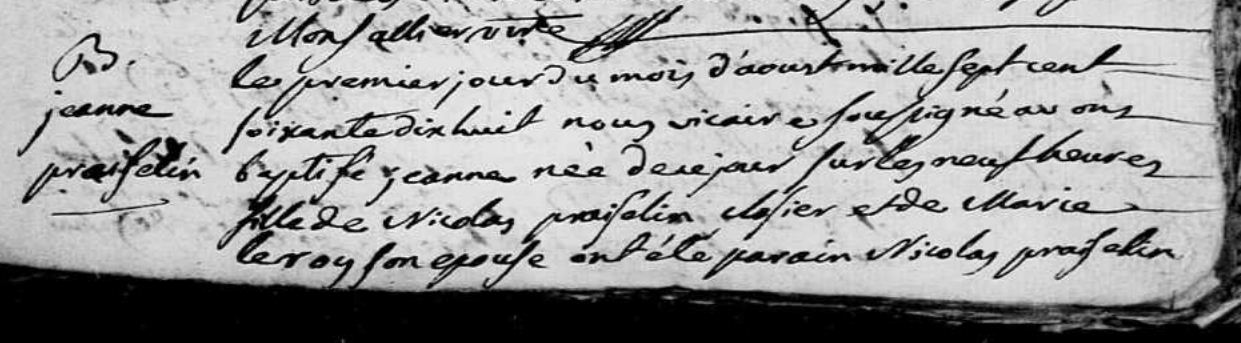 Monsallier vire
B.
jeanne
praiselin
le premier jour du mois d'aoust mille sept cent
soixante dix huit nous vicaire soussigné avons
baptisé jeanne née de ce jour sur les neuf heures
fille de Nicolas praiselin closier et de Marie
leroy son epouse ont été parain Nicolas praiselin